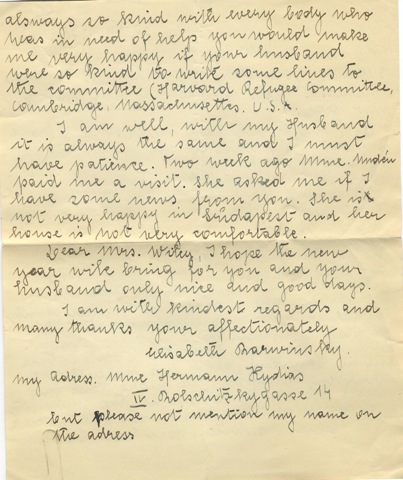 alsways so kind with every body who
was in need of help you would make
me very happy if your husband
were so kind to write some lines to
the committee (Harvard Refugee Committee,
Cambridge, Massachusettes. U.S.A.
I am well, with my Husband
it is always the same and I must
have patience. Two week ago Mme.
paid me a visit. She asked me if I
have some news from You. She is
not very happy in Budapest and her
house is not very comfortable.
Dear Mrs. Wiley, I hope the new
year will bring for you and your
husband only nice and good days.
I am with kindest regards and
many thanks your affectionately
Elisabeth Barwinsky.
my adress. Mme Hermann Hydias
IV. 14
but please not mention my name on
the adress